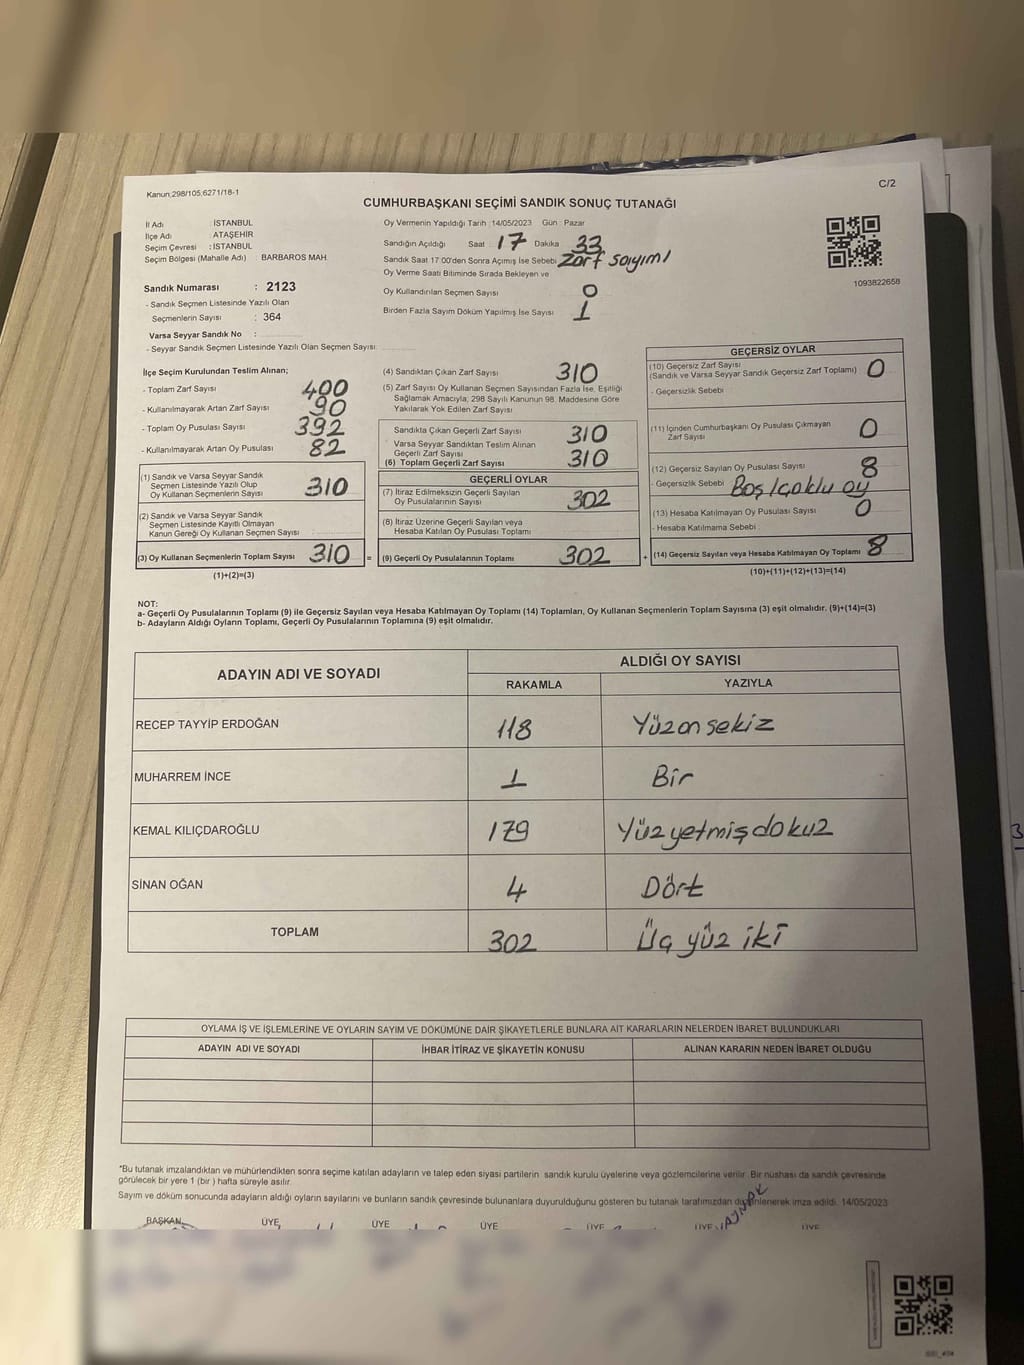 Kanun:298/105,6271/18-1
C/2
CUMHURBAŞKANI SEÇİMİ SANDIK SONUÇ TUTANAĞI
İl Adı : İSTANBUL
İlçe Adı : ATAŞEHİR
Seçim Çevresi : İSTANBUL
Seçim Bölgesi (Mahalle Adı) : BARBAROS MAH.
Sandık Numarası : 2123
- Sandık Seçmen Listesinde Yazılı Olan
Seçmenlerin Sayısı : 364
Varsa Seyyar Sandık No :
- Seyyar Sandık Seçmen Listesinde Yazılı Olan Seçmen Sayısı:
Oy Vermenin Yapıldığı Tarih : 14/05/2023 Gün : Pazar
Sandığın Açıldığı Saat : 17 Dakika : 33
Sandık Saat 17.00'den Sonra Açımış İse Sebebi : Zarf sayımı
Oy Verme Saati Bitiminde Sırada Bekleyen ve
Oy Kullandırılan Seçmen Sayısı 0
Birden Fazla Sayım Döküm Yapılmış İse Sayısı 1
1093822658
İlçe Seçim Kurulundan Teslim Alınan;
- Toplam Zarf Sayısı 400
- Kullanılmayarak Artan Zarf Sayısı 90
- Toplam Oy Pusulası Sayısı 392
- Kullanılmayarak Artan Oy Pusulası 82
(1) Sandık ve Varsa Seyyar Sandık
Seçmen Listesinde Yazılı Olup
Oy Kullanan Seçmenlerin Sayısı 310
(2) Sandık ve Varsa Seyyar Sandık
Seçmen Listesinde Kayıtlı Olmayan
Kanun Gereği Oy Kullanan Seçmen Sayısı
(3) Oy Kullanan Seçmenlerin Toplam Sayısı 310 =
(1)+(2)=(3)
(4) Sandıktan Çıkan Zarf Sayısı 310
(5) Zarf Sayısı Oy Kullanan Seçmen Sayısından Fazla İse, Eşitliği
Sağlamak Amacıyla, 298 Sayılı Kanunun 98. Maddesine Göre
Yakılarak Yok Edilen Zarf Sayısı
Sandıkta Çıkan Geçerli Zarf Sayısı 310
Varsa Seyyar Sandıktan Teslim Alınan
Geçerli Zarf Sayısı 310
(6) Toplam Geçerli Zarf Sayısı
GEÇERLİ OYLAR
(7) İtiraz Edilmeksizin Geçerli Sayılan
Oy Pusulalarının Sayısı 302
(8) İtiraz Üzerine Geçerli Sayılan veya
Hesaba Katılan Oy Pusulası Toplamı
(9) Geçerli Oy Pusulalarının Toplamı 302 +
GEÇERSİZ OYLAR
(10) Geçersiz Zarf Sayısı
(Sandık ve Varsa Seyyar Sandık Geçersiz Zarf Toplamı) 0
- Geçersizlik Sebebi
(11) İçinden Cumhurbaşkanı Oy Pusulası Çıkmayan
Zarf Sayısı 0
(12) Geçersiz Sayılan Oy Pusulası Sayısı 8
- Geçersizlik Sebebi Boş/çoklu oy
(13) Hesaba Katılmayan Oy Pusulası Sayısı 0
- Hesaba Katılmama Sebebi
(14) Geçersiz Sayılan veya Hesaba Katılmayan Oy Toplamı 8
(10)+(11)+(12)+(13)=(14)
NOT:
a- Geçerli Oy Pusulalarının Toplamı (9) ile Geçersiz Sayılan veya Hesaba Katılmayan Oy Toplamı (14) Toplamları, Oy Kullanan Seçmenlerin Toplam Sayısına (3) eşit olmalıdır. (9)+(14)=(3)
b- Adayların Aldığı Oyların Toplamı, Geçerli Oy Pusulalarının Toplamına (9) eşit olmalıdır.
ADAYIN ADI VE SOYADI
ALDIĞI OY SAYISI
RAKAMLA YAZIYLA
RECEP TAYYİP ERDOĞAN 118 Yüzonsekiz
MUHARREM İNCE 1 Bir
KEMAL KILIÇDAROĞLU 179 Yüzyetmişdokuz
SİNAN OĞAN 4 Dört
TOPLAM 302 Üç yüz iki
OYLAMA İŞ VE İŞLEMLERİNE VE OYLARIN SAYIM VE DÖKÜMÜNE DAİR ŞİKAYETLERLE BUNLARA AİT KARARLARIN NELERDEN İBARET BULUNDUKLARI
ADAYIN ADI VE SOYADI İHBAR İTİRAZ VE ŞİKAYETİN KONUSU ALINAN KARARIN NEDEN İBARET OLDUĞU
*Bu tutanak imzalandıktan ve mühürlendikten sonra seçime katılan adayların ve talep eden siyasi partilerin sandık kurulu üyelerine veya gözlemcilerine verilir. Bir nüshası da sandık çevresinde
görülecek bir yere 1 (bir ) hafta süreyle asılır.
Sayım ve döküm sonucunda adayların aldığı oyların sayılarını ve bunların sandık çevresinde bulunanlara duyurulduğunu gösteren bu tutanak tarafımızdan düzenlenerek imza edildi. 14/05/2023
BAŞKAN ÜYE ÜYE ÜYE ÜYE ÜYE ÜYE